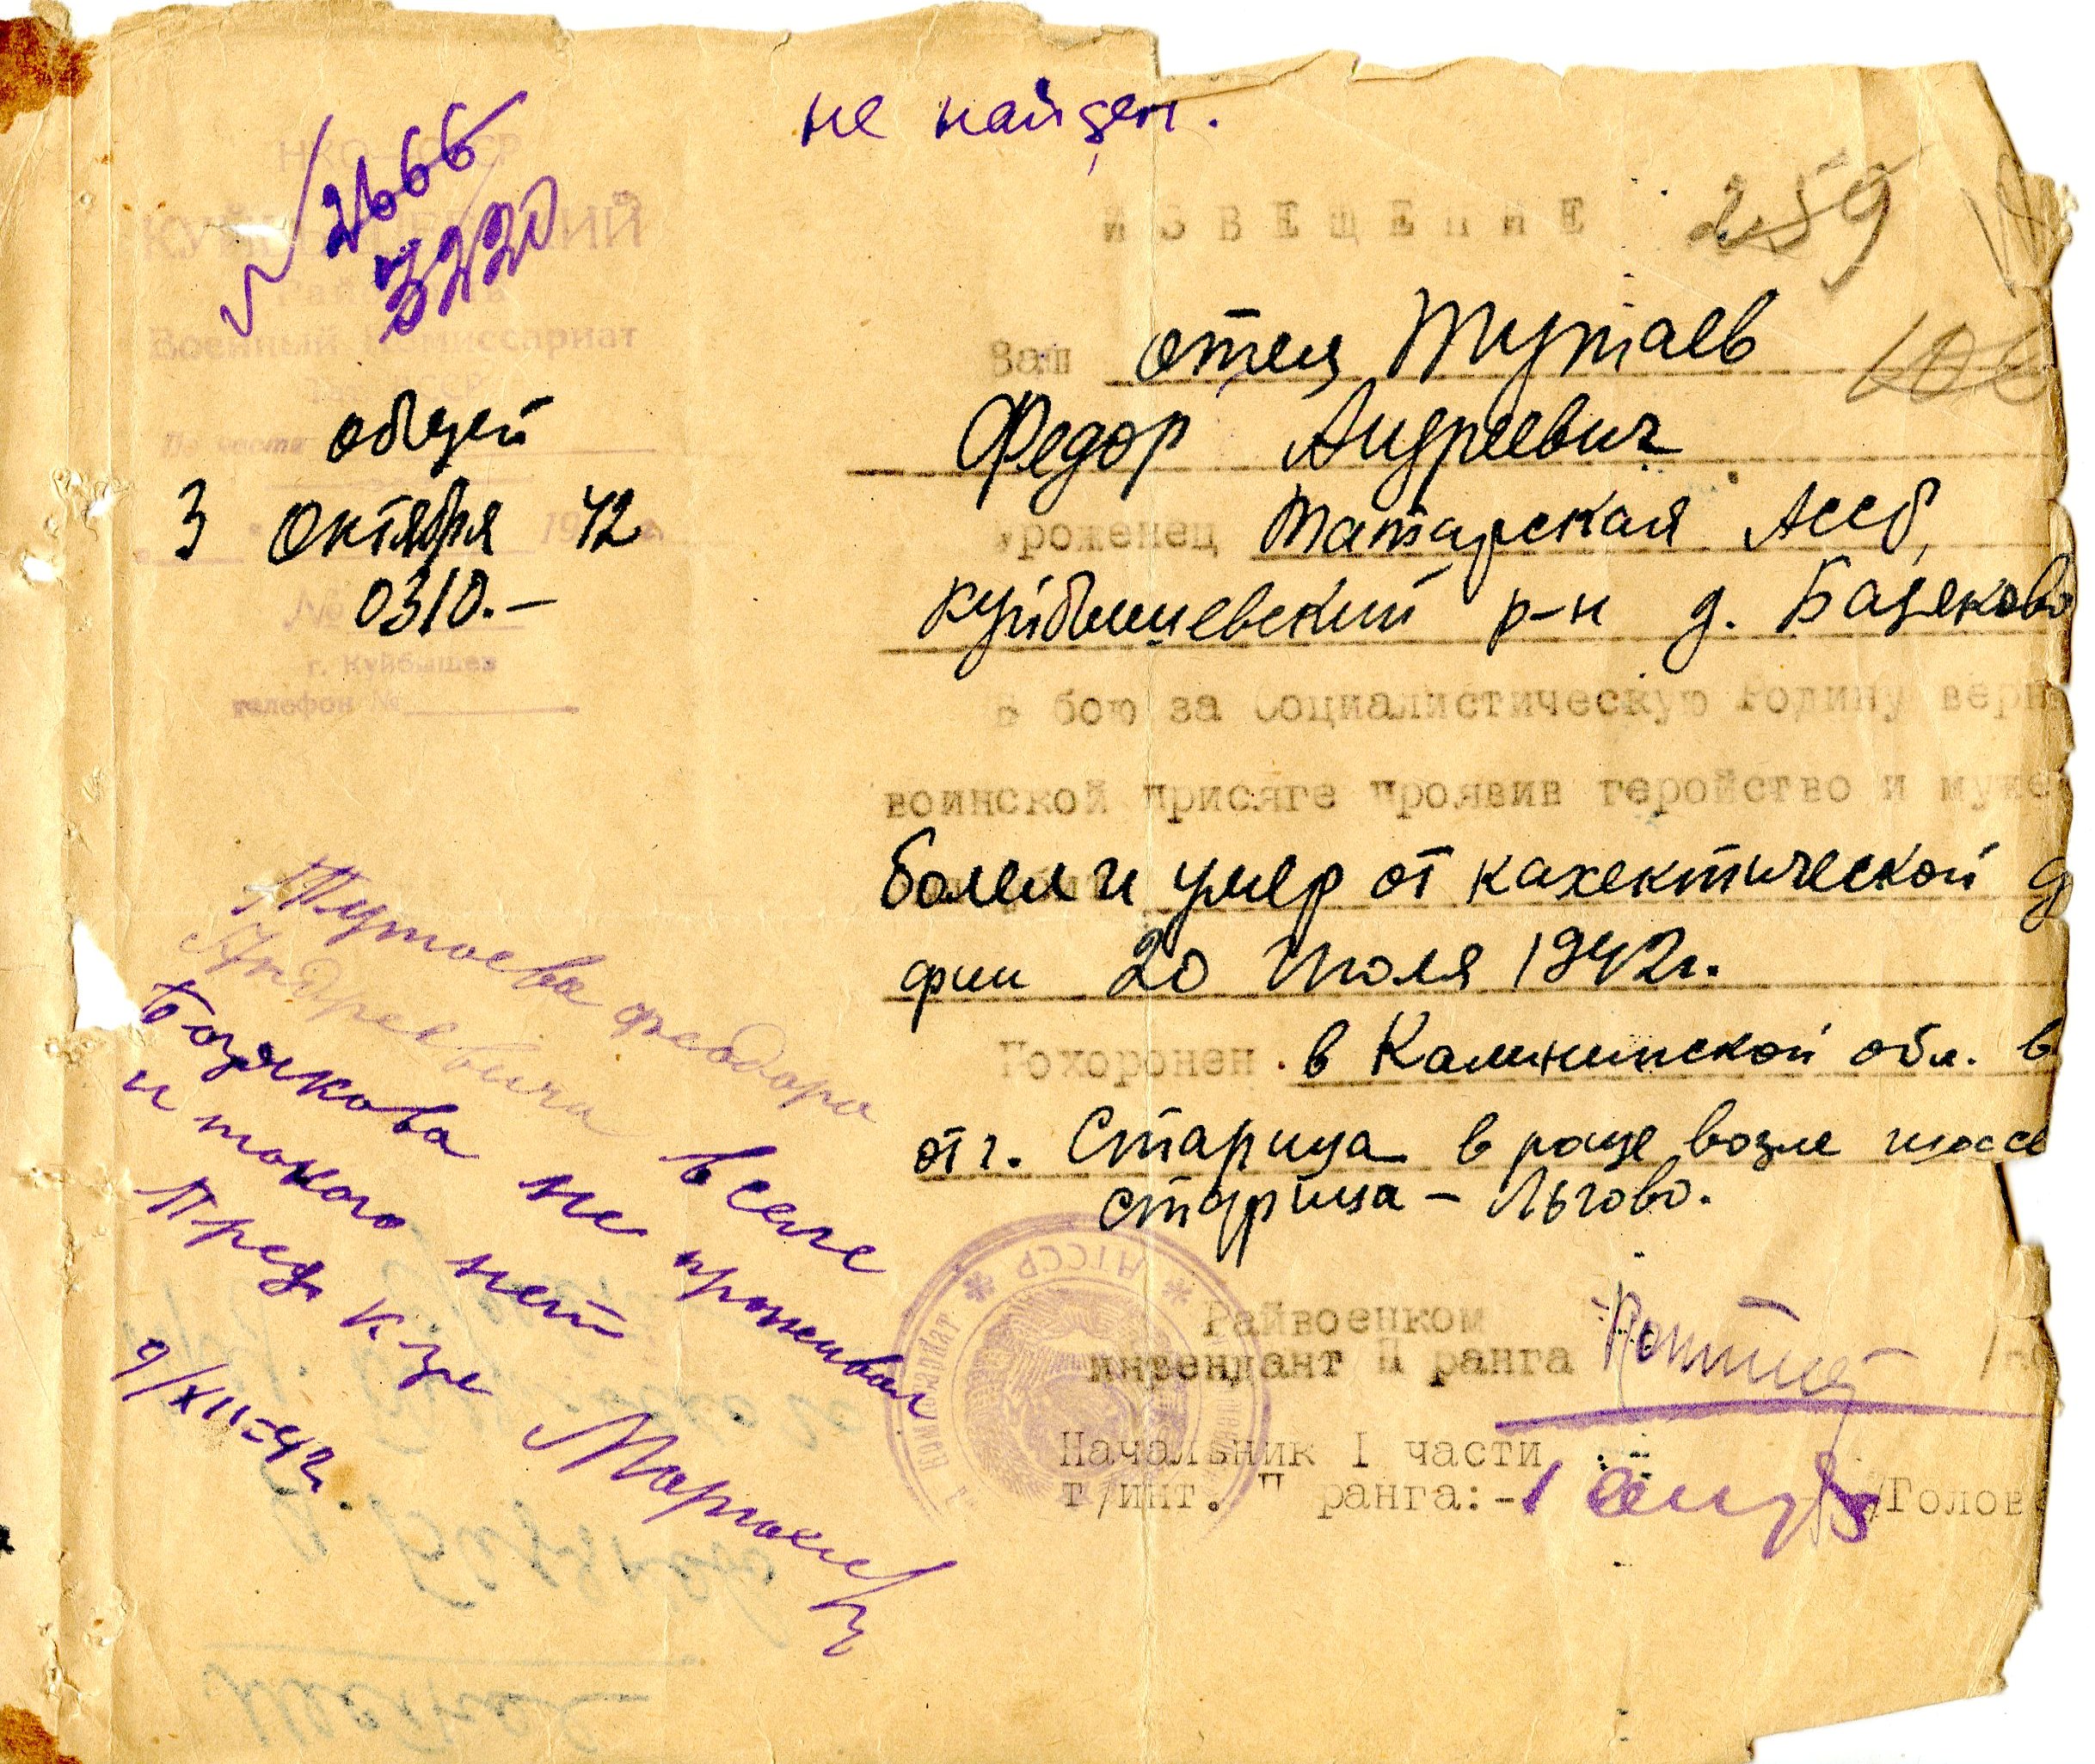 не найден.
2666
3220
НКО СССР
КУЙБЫШЕВСКИЙ
Районный
Военный Комиссариат
По части общей
3 Октября 1942 г.
№ 0310.-
г. Куйбышев
телефон №
ИЗВЕЩЕНИЕ 259
Ваш отец Тутаев
Федор Андреевич
уроженец Татарская Асср,
куйбышевский р-н д. Базяково
В бою за Социалистическую Родину верн
воинской присяге проявив геройство и муже
болел и умер от кахектической д
фии 20 Июля 1942г.
Похоронен. в Калининской обл. в
от г. Старица в роще возле шосс
старица - Льгово.
Райвоенком
интендант II ранга
Начальник I части
т/инт. II ранга:- /Голов
Тутаева Феодора
Андреевича в селе
Базякова не проживал
и такого нет
Пред к-за
9/XII-42
АТССР